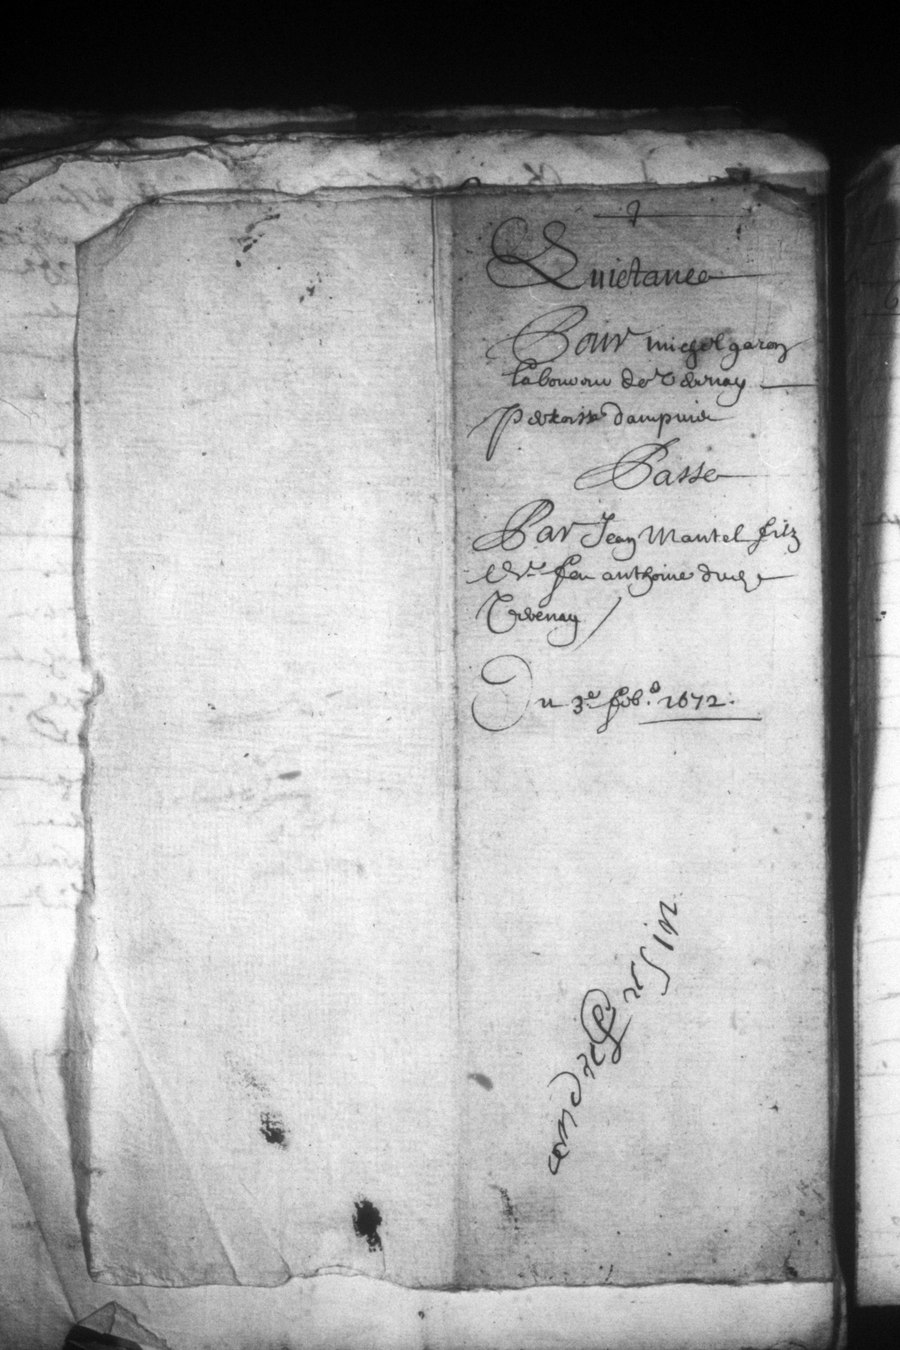 Quictance
Pour michel garon
laboureur de Vernay
paroisse dampuis
Passe
Par Jean Mantel filz
feu anthoine dud
Vernay
Du 3e feb. 1672.